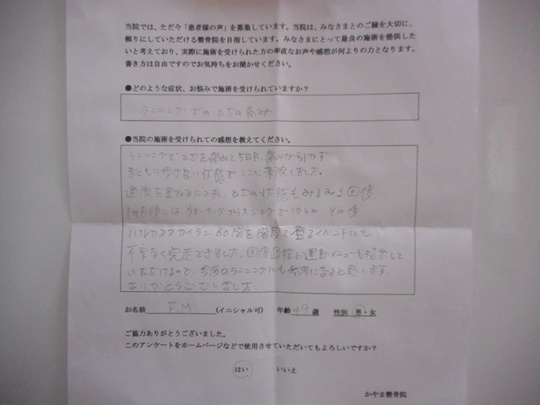 当院では、ただ今「患者様の声」を募集しています。当院は、みなさまとのご縁を大切に、
頼りにしていただける整骨院を目指しています。みなさまにとって最良の施術を提供した
いと考えており、実際に施術を受けられた方の率直なお声や感想が何よりの力となります。
書き方は自由ですのでお気持ちをお聞かせください。
●どのような症状、お悩みで施術を受けられていますか？
ランニングでのひざの痛み
●当院の施術を受けられての感想を教えてください。
ランニングでひざを痛めて5日目、痛みが引かず
まともに歩けない状態でここに来院しました。
通院を重ねるにつれ、ひざの状態もみるみる回復
1ヶ月後には 10km、その後
ハルカススカイラン 60階を階段で登るイベントにも
不安なく完走できました。回復過程で運動メニューも指示して
いただけるので、今後のランニングにも参考になると思います
ありがとうございました。
お名前 F.M. (イニシャル可) 年齢 49 歳 性別 男・女
ご協力ありがとうございました。
このアンケートをホームページなどで使用させていただいてもよろしいですか？
はい いいえ
かやま整骨院